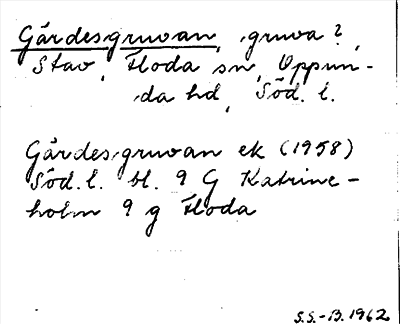 Gårdesgruvan, gruva?,
Stav, Floda sn, Oppun-
da hd, Söd. l.
Gårdesgruvan ek (1958)
Söd. l. bl. 9 G Katrine-
holm 9 g Floda
S.S.-B. 1962